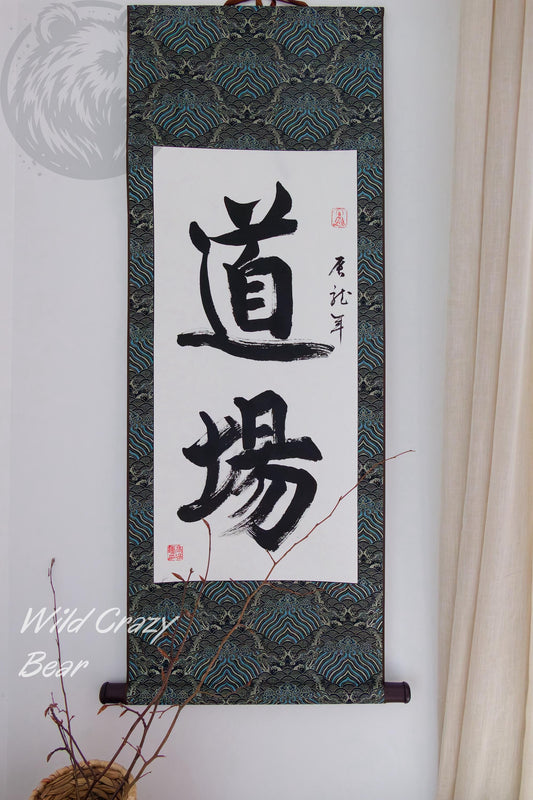 道場
辰龍年
Wild Crazy
Bear